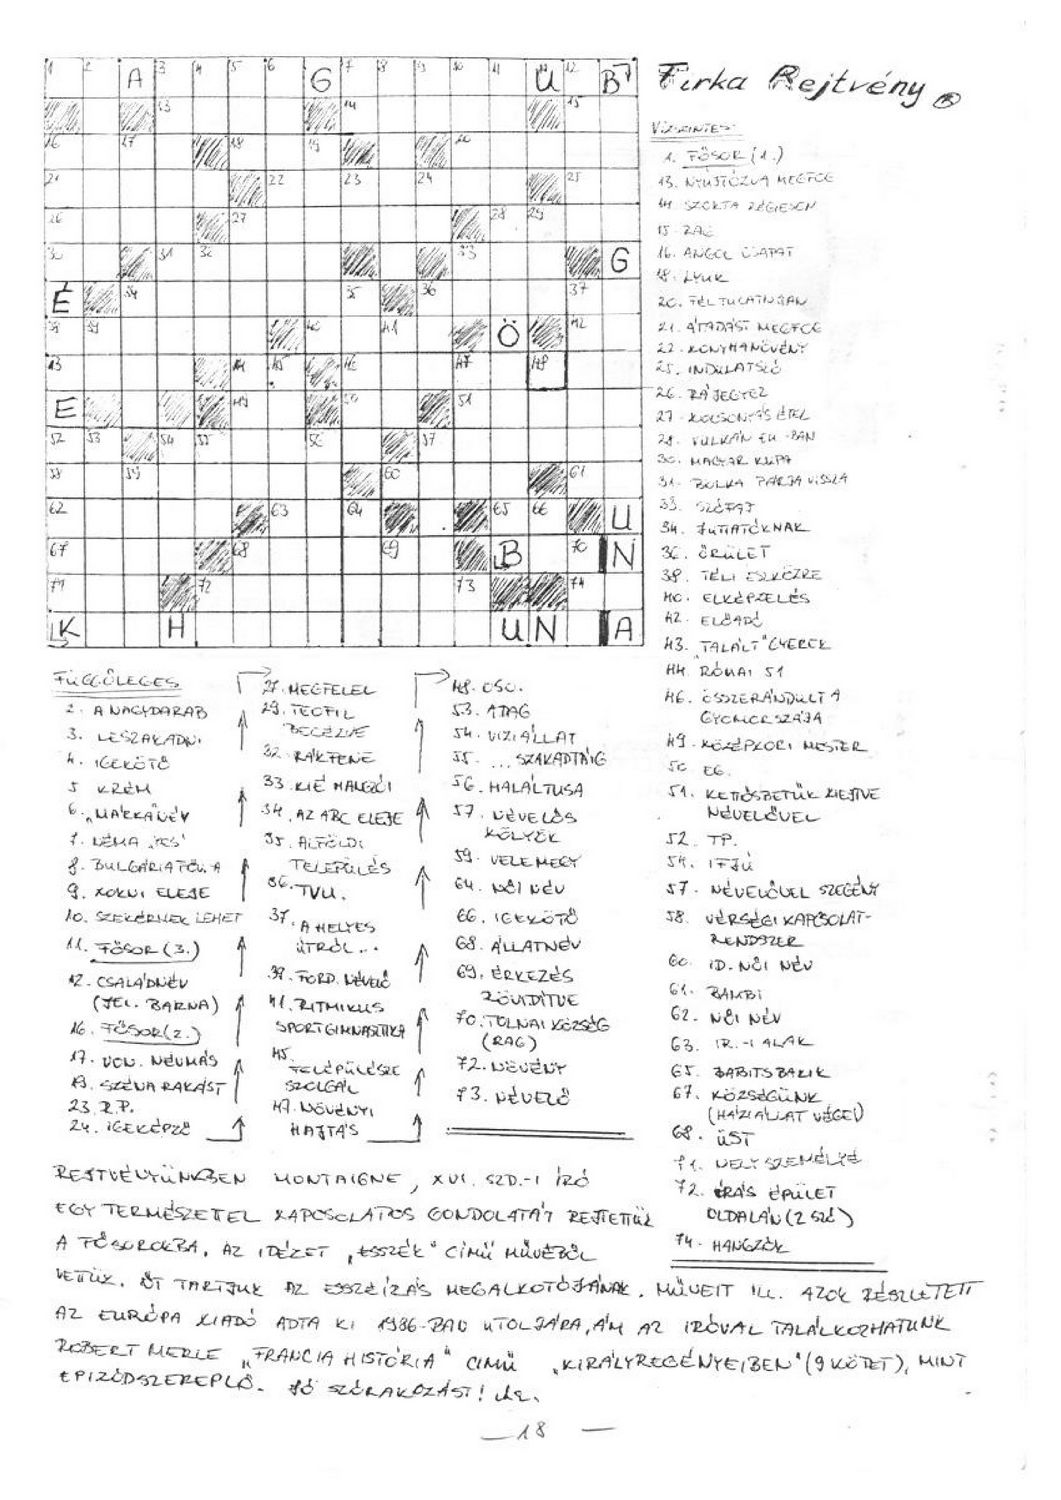 Firka Rejtvény
VÍZSZINTES:
1. FŐSOR (1.)
13. NYÚJTÓZVA MEGFOG
14. SZOKTA RÉGIESEN
15. RAG
16. ANGOL CSAPAT
18. LYUK
20. FÉLTUCATNYIAN
21. ÁTADÁST MEGFOG
22. KONYHANÖVÉNY
25. INDULATSZÓ
26. RÁJEGYEZ
27. KOCSONYÁS ÉTEL
28. VULKÁN EU-BAN
30. MAGYAR KUPA
31. BULKA PÁRJA VISSZA
33. SZÓFAJ
34. JUTTATÓKNAK
36. ŐRÜLET
38. TÉLI ESZKÖZRE
40. ELKÉPZELÉS
42. ELŐADÓ
43. "TALÁLT" GYEREK
44. RÓMAI 51
46. ÖSSZERÁNDULT A
GYOMORSZÁJA
49. KÖZÉPKORI MESTER
50. EG.
51. KETTŐSBETŰK KIEJTVE
NÉVELŐVEL
52. TP.
54. IFJÚ
57. NÉVELŐVEL SZEGÉNY
58. VÉRSÉGI KAPCSOLAT-
RENDSZER
60. ID. NŐI NÉV
61. BAMBI
62. NŐI NÉV
63. IR.-I ALAK
65. BABITS BAKIK
67. KÖZSÉGÜNK
(HÁZIÁLLAT VÉGEL)
68. ÜST
71. HELY SZEMÉLYÉ
72. ÓRÁS ÉPÜLET
OLDALÁN (2 SZÓ)
74. HANGZÓK
FÜGGŐLEGES
2. A NAGYDARAB
3. LESZAKADNI
4. IGEKÖTŐ
5. KRÉM
6. "MÁRKANÉV
7. NÉMA "PES"
8. BULGÁRIA FŐV. A
9. KOKNI ELEJE
10. SZEKÉRNEK LEHET
11. FŐSOR (3.)
12. CSALÁDNÉV
(JEL. BARNA)
16. FŐSOR (2.)
17. VON. NÉVMÁS
19. SZÉNA RAKÁST
23. R.P.
24. IGEKÉPZŐ
27. MEGFELEL
29. TEOFIL
BECÉZVE
32. RÁKFENE
33. KIÉ HANGZÓI
34. AZ ABC ELEJE
35. ALFÖLDI
TELEPÜLÉS
36. TVU.
37. A HELYES
ÚTRÓL...
39. FORD. NÉVELŐ
41. RITMIKUS
SPORTGIMNASZTIKA
45. TELEPÜLÉSE
SZOLGÁL
47. NÖVÉNYI
HAJTÁS
48. OSO.
53. ATAG
54. VIZIÁLLAT
55. ... SZAKADTÁIG
56. HALÁLTUSA
57. NÉVELŐS
KÖLYÖK
59. VELE MEGY
64. NŐI NÉV
66. IGEKÖTŐ
68. ÁLLATNÉV
69. ÉRKEZÉS
RÖVIDÍTVE
70. TOLNAI KÖZSÉG
(RAG)
72. NÖVÉNY
73. NÉVELŐ
REJTVÉNYÜNKBEN MONTAIGNE, XVI. SZD.-I ÍRÓ
EGY TERMÉSZETTEL KAPCSOLATOS GONDOLATÁT REJTETTÜK
A FŐSOROKBA. AZ IDÉZET "ESSZÉK" CÍMŰ MŰVÉBŐL
VETTÜK. ŐT TARTJUK AZ ESSZÉÍRÁS MEGALKOTÓJÁNAK. MŰVEIT ILL. AZOK RÉSZLETEIT
AZ EURÓPA KIADÓ ADTA KI 1986-BAN UTOLJÁRA, ÁM AZ ÍRÓVAL TALÁLKOZHATUNK
ROBERT MERLE "FRANCIA HISTÓRIA" CIMŰ "KIRÁLYREGÉNYEIBEN" (9 KÖTET), MINT
EPIZÓDSZEREPLŐ. JÓ SZÓRAKOZÁST!
— 18 —